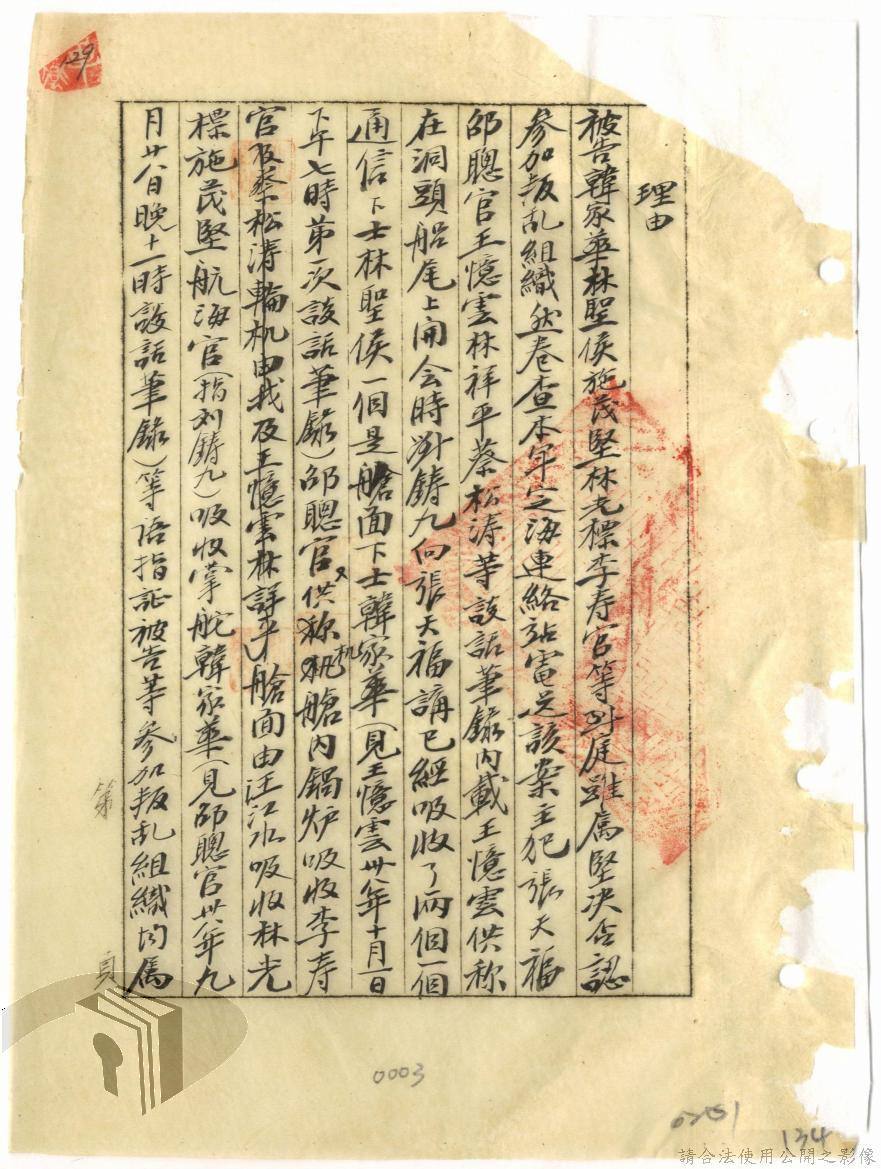 129
理由
被告韓家華林聖侯施茂堅林光標李寿官等到庭雖属堅决否認
參加叛乱組織然卷查本军定海連絡站電送該案主犯張天福
邵聰官王憶雲林祥平蔡松涛等談話筆錄内載王憶雲供称
在洞頭船尾上開会時刘鋳九向張天福講已經吸收了兩個一個
通信下士林聖侯一個是艙面下士韓家華(見王憶雲卅八年十月一日
下午七時第一次談話筆錄)邵聰官又供称机艙内鍋炉吸收李寿
官及蔡松涛輪机由我及王憶雲林詳平艙面由汪江水吸收林光
標施茂堅航海官(指刘鋳九)吸收掌舵韓家華(見邵聰官卅八年九
月廿八日晚十一時談話筆錄)等語指証被告等參加叛乱組織均属
第
頁
0003
134
請合法使用公開之影像